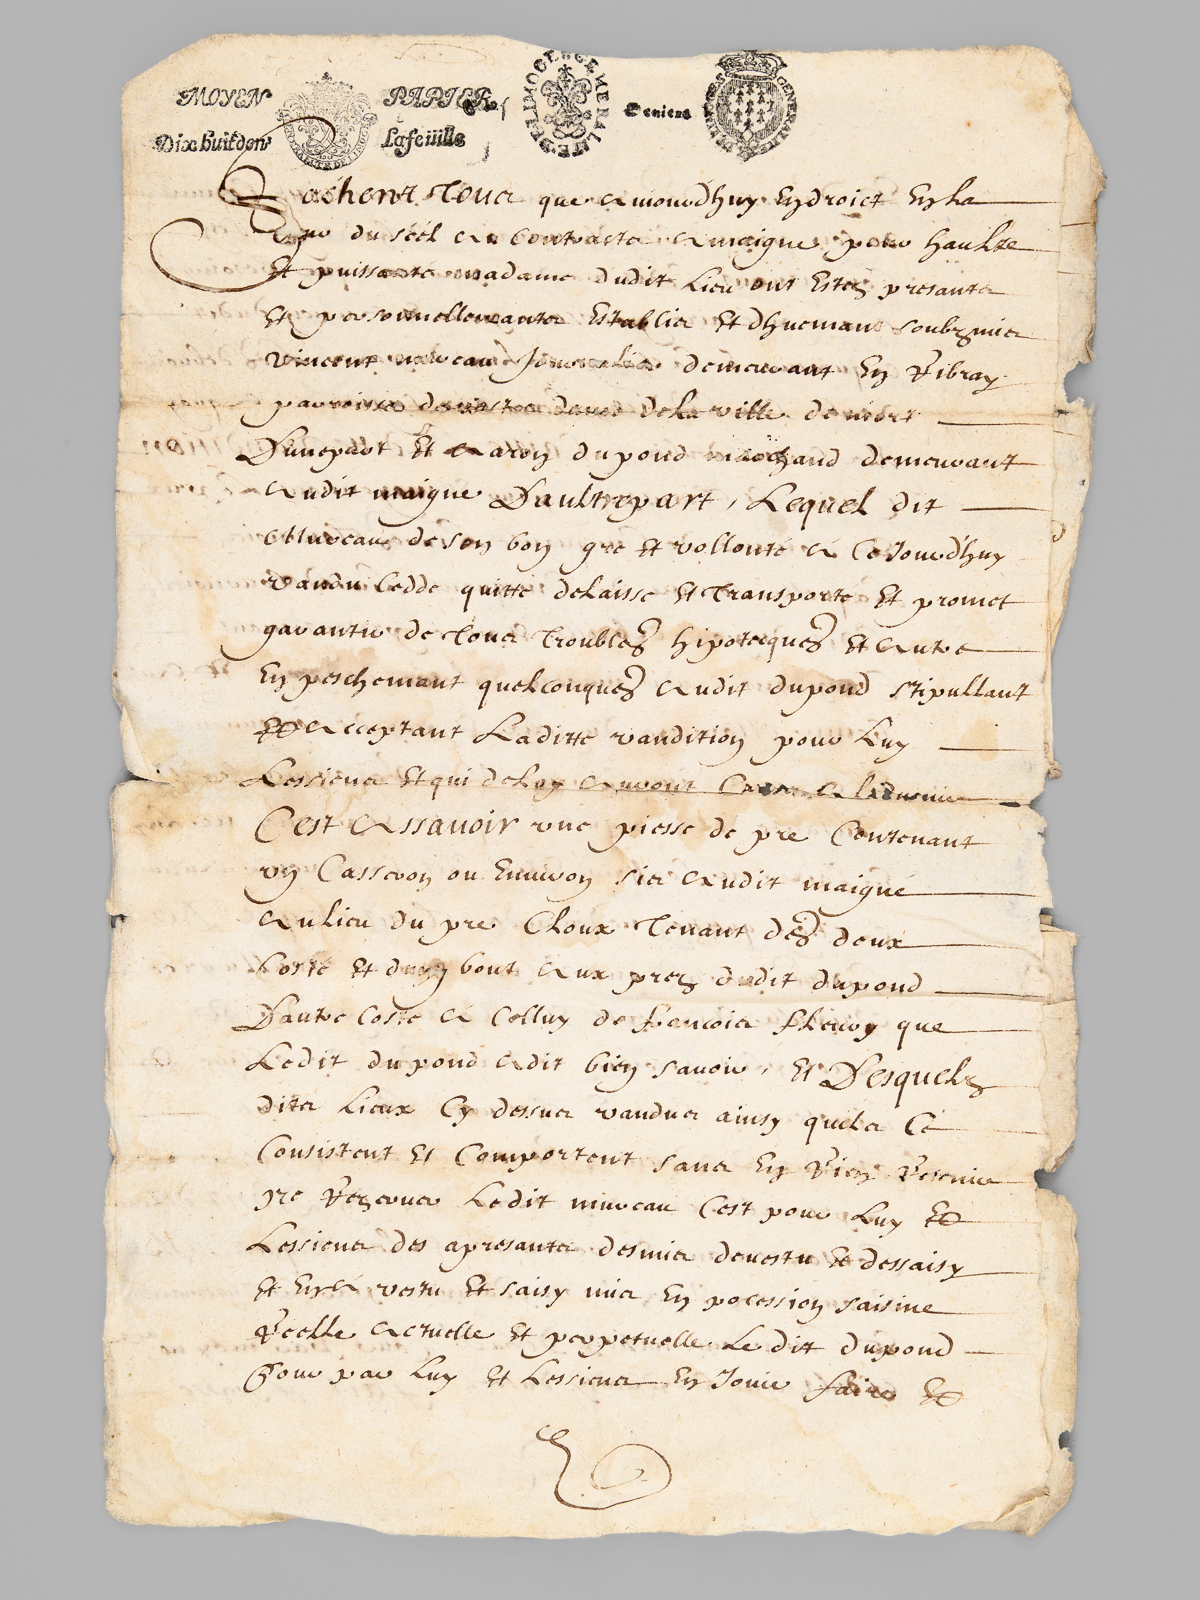 MOYEN PAPIER
Dix huit den^s La feüille
GENERALITE DE LIMOGES
deniers
GENERALITE
Sachent Tous que aujourdhuy En droict En La
Cour du séél aux Contracts a maigne pour haulte
Et puissante madame dudit Lieu ont Estez presants
Et personnellemants Establis Et dhuemant soubzmis
Vincent demeurant En Ribray
parroisse de la ville de niort
D'unepart Et aaron dupond marchand demeurant
audit maigne D'aultrepart, Lequel dit
de son bon gre Et vollonté a Ce Jourdhuy
vandu Cedde quitte delaisse Et Transporte Et promet
garantir de Tous Troublez hipotecquez Et autre
Enpeschemant quelconquez audit dupond stipullant
Et acceptant Laditte vandition pour Luy
Lessiens Et qui de Luy auront Cause a Ladvenir
C'est assavoir une piesse de pre Contenant
un Casseron ou Environ sis audit maigné
au lieu du pre Cloux Tenant dez deux
Costé Et dung bout aux prez dudit dupond
D'autre Costé a Celluy de françois fleury que
Ledit dupond a dit bien savoir, Et Desquels
dits Lieux Cy dessus vandus ainsy quels Ce
Consistent Et Comportent sans En Rien Reteni
ne Rezerver Ledit Cest pour Luy Et
Lessiens des apresants desmis devestu Et dessaisy
Et En a vestu Et saisy mis En pocession saisine
Reelle actuelle Et perpetuelle Le dit dupond
Pour par Luy Et Lessiens En Jouir faire Et